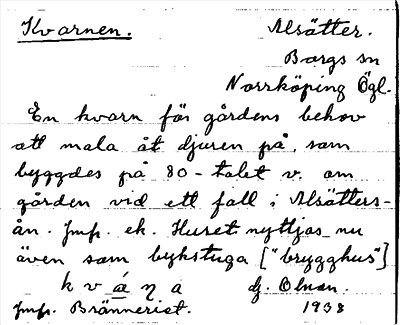 Kvarnen. Älsätter.
Borgs sn
Norrköping Ögl.
En kvarn för gårdens behov
att mala åt djuren på, som
byggdes på 80-talet v. om
gården vid ett fall i Älsätters-
ån. Jmf. ek. Huset nyttjas nu
även som bykstuga ["brygghus"]
k v á η a
Jmf. Bränneriet. 1938